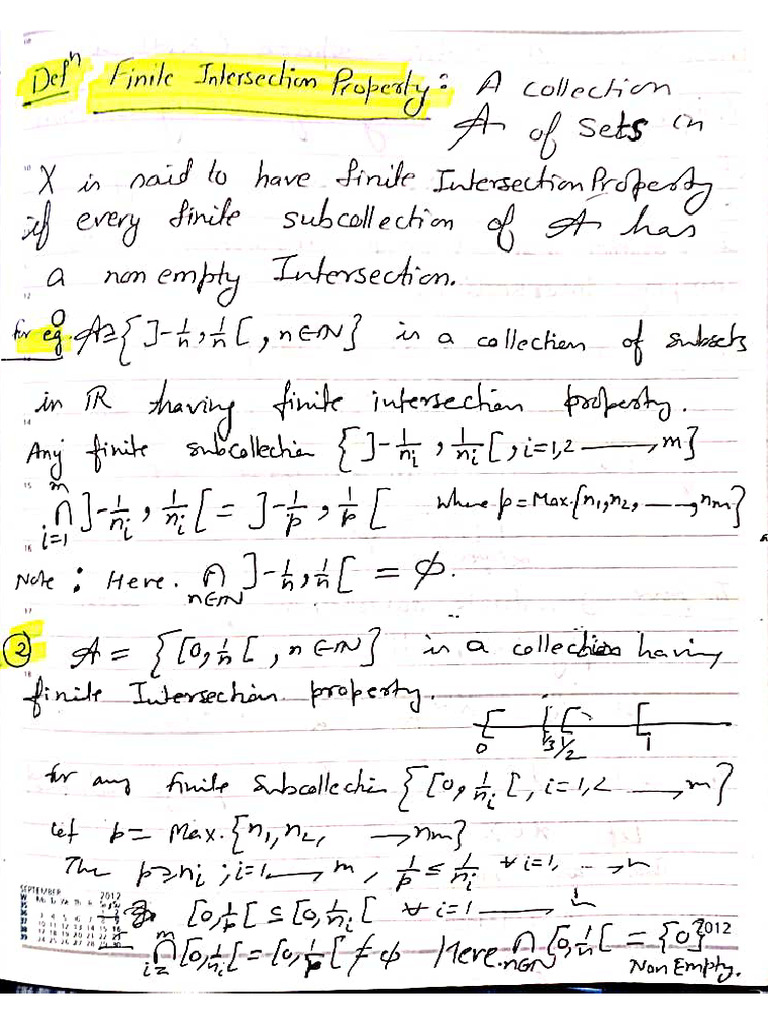 Defⁿ Finite Intersection Property: A collection
𝒜 of sets in
X is said to have finite Intersection Property
if every finite subcollection of 𝒜 has
a non empty Intersection.
for eg. 𝒜 = { ]-1/n, 1/n[ , n∈ℕ} is a collection of subsets
in ℝ having finite intersection property.
Any finite subcollection { ]-1/nᵢ, 1/nᵢ[, i=1,2 ——, m}
⋂_{i=1}^{m} ]-1/nᵢ, 1/nᵢ[ = ]-1/p, 1/p[ where p=Max.{n₁,n₂, ——, nₘ}
Note: Here. ⋂_{n∈ℕ} ]-1/n, 1/n[ = ϕ.
② 𝒜 = { [0, 1/n[ , n∈ℕ} is a collection having
finite Intersection property.
0 1/3 1/2 1
for any finite Subcollection { [0, 1/nᵢ[, i=1,2 ——, m}
let p = Max.{n₁,n₂, ——, nₘ}
The p≥nᵢ ; i=1 ——, m, 1/p ≤ 1/nᵢ ∀ i=1, ——, n
[0, 1/p[ ⊆ [0, 1/nᵢ[ ∀ i=1 ——
⋂_{i=}^{m} [0, 1/nᵢ[ = [0, 1/p[ ≠ ϕ Here. ⋂_{n∈ℕ} [0, 1/n[ = {0}
Non Empty.
SEPTEMBER 2012
2012